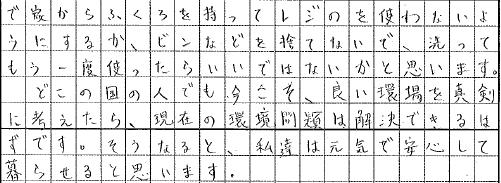 で家からふくろを持ってレジのを使わないよ
うにするか、ビンなどを捨てないで、洗って
もう一度使ったらいいではないかと思います。
どこの国の人でも今こそ、良い環境を真剣
に考えたら、現在の環境問題は解決できるは
ずです。そうなると、私達は元気で安心して
暮らせると思います.